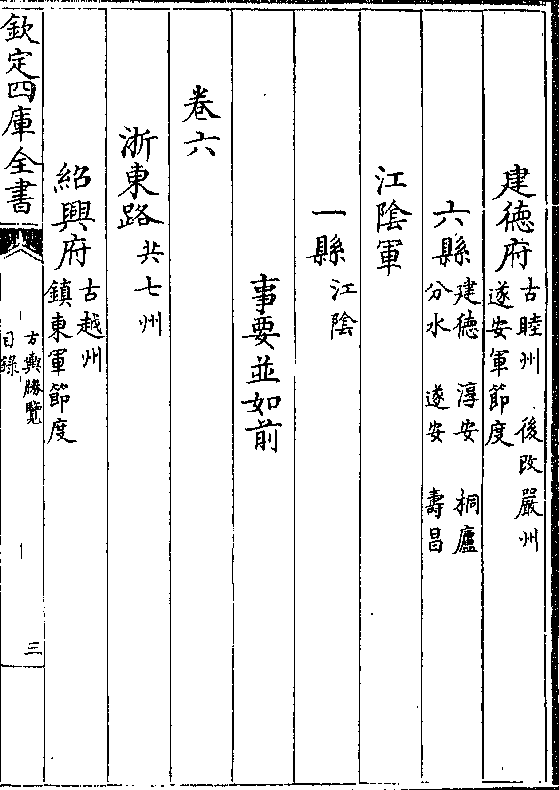 建德府古睦州　後改嚴州
遂安軍節度
六縣建德　淳安　桐廬
分水　遂安　壽昌
江陰軍
一縣江陰
事要並如前
卷六
浙東路共七州
紹興府古越州
鎮東軍節度
欽定四庫全書
方輿勝覽
目錄
三